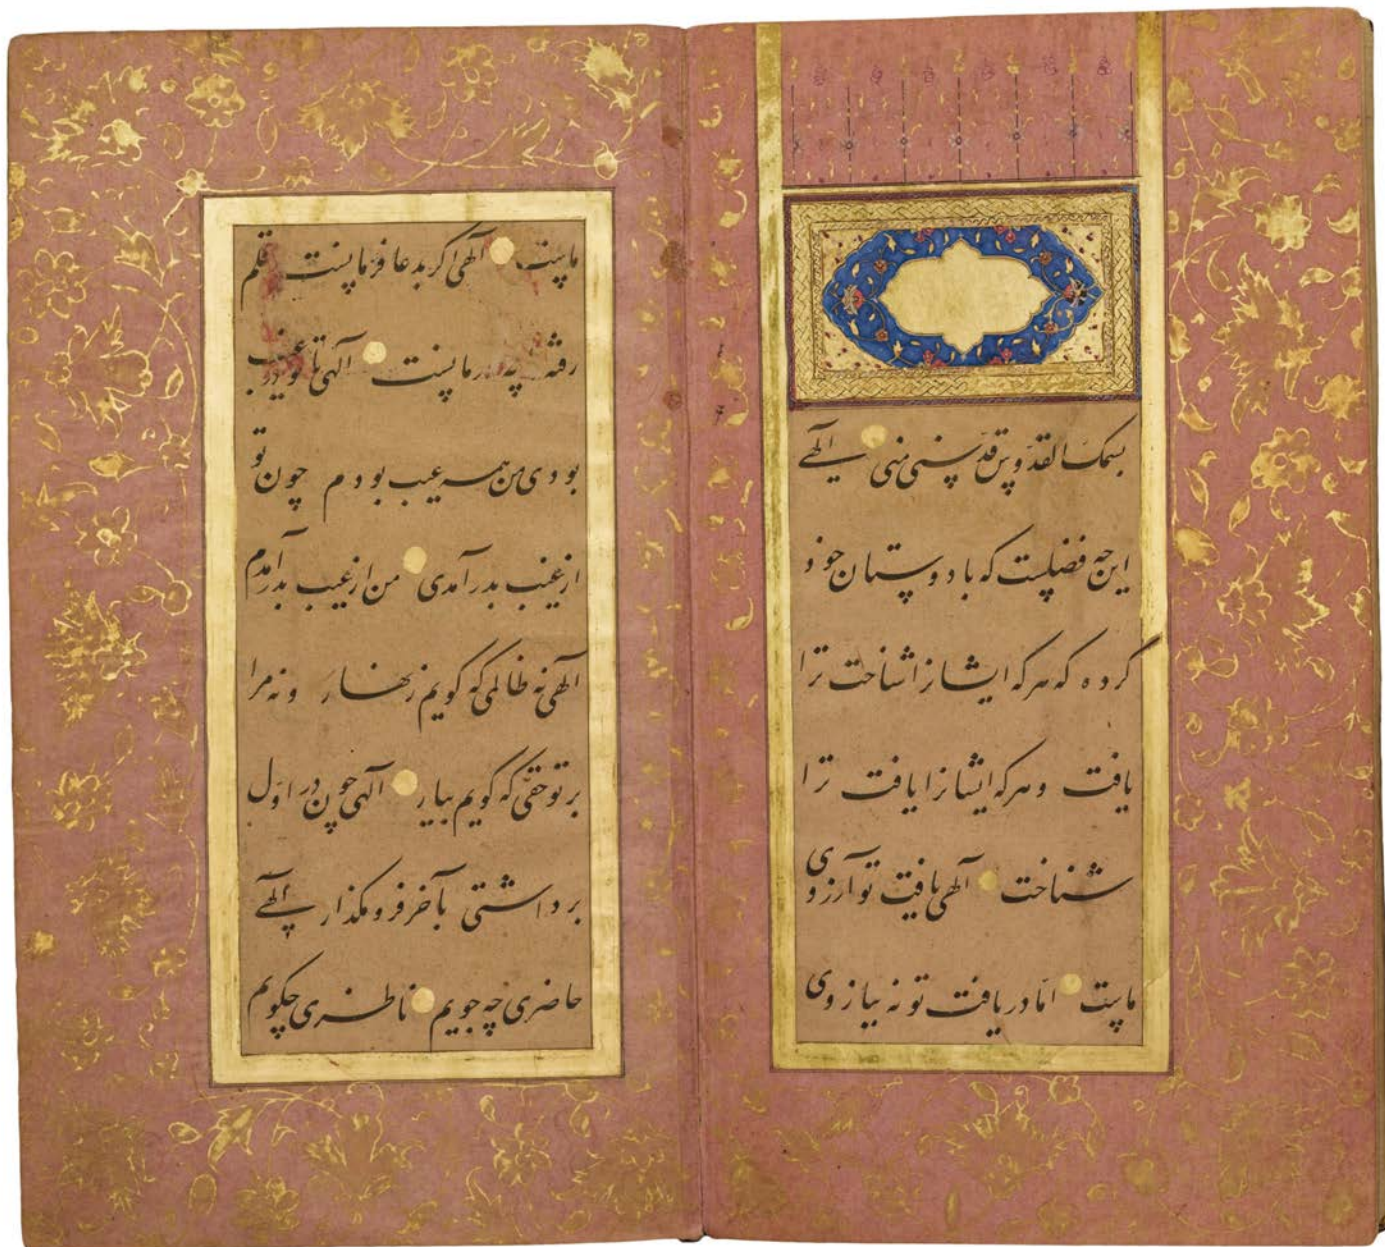 بسمک القدوس قدسنی منی الهی
این چه فضلست که با دوستان خود
کرده که هرکه ایشانرا شناخت ترا
یافت و هرکه ایشانرا یافت ترا
شناخت الهی یافت تو آرزوی
ماست اما دریافت تو نه ببازوی
ماست الهی اکر بدعا فرماست قلم
رفته را چه درماست الهی تا تو در غیب
بودی من همه عیب بودم چون تو
از غیب بدر آمدی من از عیب بدر آمدم
الهی نه ظالمی که کویم زنهار و نه مرا
بر تو حقی که کویم بیار الهی چون در اول
برداشتی بآخر فرو مکذار الهی
حاضری چه جویم ناظری چکویم